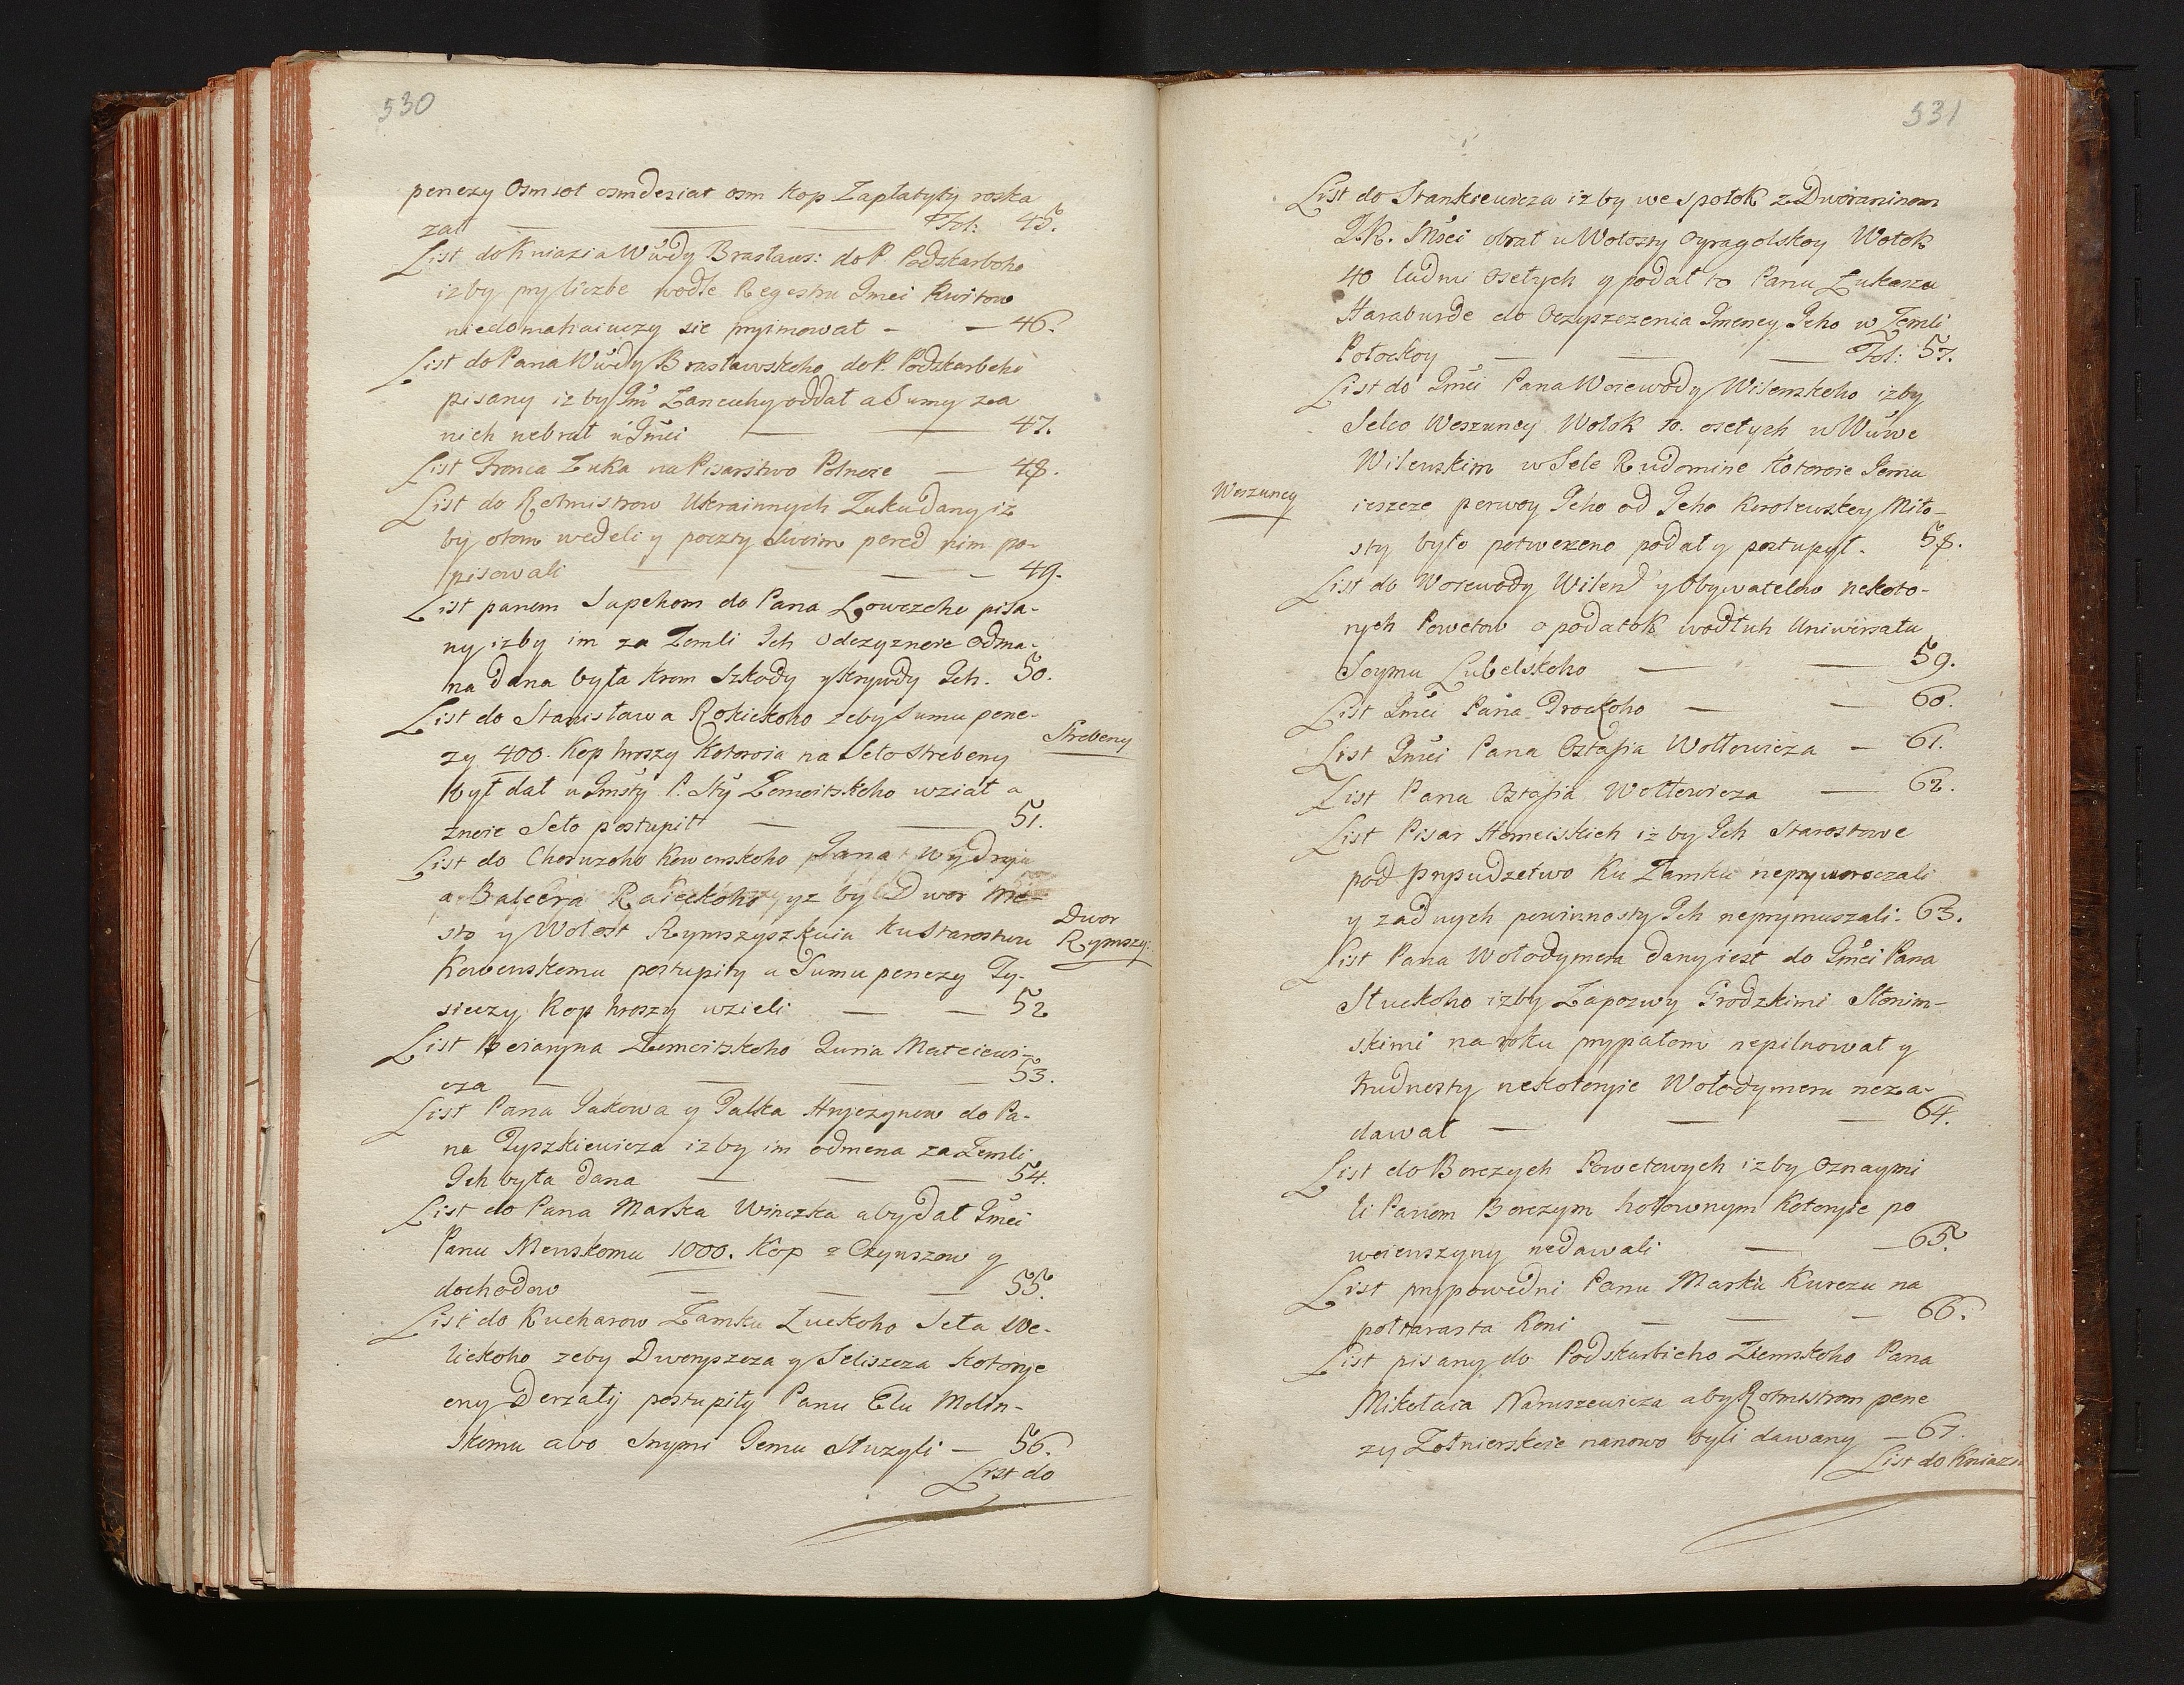 530
penezy Osmsot osmdesiat osm kop Zapłatyty roska
zał — — Fol: 45.
List do Kniazia Wŭdy Brasławs: do P. Podskarboho
izby pry liczbe wodłe Regestru Jmci Kwitow
niedomahaiuczy sie pryimował — — 46.
List do Pana Wŭdy Brasławskoho do P. Podskarboho
pisany izby Jm̃ Łancuhy oddał a Sumy za
nich nebrał u Jmci — — 47.
List Fronca Żuka na Pisarstwo Polnoie — 48.
List do Rotmistrow Ukrainnych Żuku dany iz
by otom wedeli y poczty Swoim pered nim po-
pisowali — — — — 49.
List panom Sapehom do Pana Łowczeho pisa-
ny izby im za Zemli Ich Odczyznoie Odme-
na dana była krom Szkody y Krywdy Ich. 50.
List do Stanisława Rokickoho żeby Sumu pene-
zy 400. Kop hroszy Kotoroia na Seło Strebeny
był dał u Jmsty P. Sty Żomoitskoho wział a
znoie Seło postupił — — 51.
Strebeny
List do Choruzoho Kowenskoho Jana Wydryju
a Balcera Raieckoho yz by Dwor Me-
sto y Wołost Rymszyszkuiu Ku Starostwu
Dwor
Rymszy:
Kowenskomu postupiły a Sumu penezy Ty-
sieczy Kop hroszy wzieli — — 52
List Boiaryna Żomoitskoho Juria Mateiewi-
cza — — — — 53.
List Pana Jakowa y Palka Hryczynow do Pa-
na Tyszkiewicza izby im odmena za Zemli
Ich była dana — — — 54.
List do Pana Marka Wnuczka aby dał Jmci
Panu Menskomu 1000. Kop z Czynszow y
dochodow — — — 55.
List do Kucharow Zamku Łuckoho Seła We-
lickoho żeby Dworyszcza y Seliszcza Kotoryje
ony Derżały postupiły Panu Elu Molin-
skomu abo Snymi Jemu Słuzyli — 56.
List do
531
List do Stankiewicza izby we społok z Dworaninom
J.K. Mści obrał u Wołosty Oyragolskoy Wołok
40 ludmi osełych y podał to Panu Łukaszu
Haraburde do Oczyszczenia Jmeney Jeho w Zemli
Połockoy — — — Fol: 57.
List do Jmci Pana Woiewody Wilenskoho izby
Selco Weszuncy Wołok 10. osełych w Wŭwe
Wilenskim w Sele Rudomine Kotoroie Jemu
Weszuncy
ieszcze perwoy Jeho od Jeho Krolewskoy Miło-
sty było potwerzeno podał y postupył. 58.
List do Woiewody Wilen̾ y Obywatelow nekoto-
rych Powetow o podatok wodłuh Uniwersału
Soymu Lubelskoho — — 59.
List Jmci Pana Trockoho — — 60.
List Jmci Pana Ostafia Wołłowicza — 61.
List Pana Ostafia Wołłowicza — 62.
List Pisar Homeiskich iz by Ich Starostowe
pod prysudzetwo Ku Zamku nepryworoczali
y zadnych powinnosty Ich neprymuszali. 63.
List Pana Wołodymera dany iest do Jmci Pana
Słuckoho izby Zapozwy Grodzkimi Słonim-
skimi na roku prypałom nepilnował y
trudnosty nekotoryie Wołodymeru neza-
dawał — — — 64.
List do Borczych Powetowych iz by Oznaymi
li Panom Borczym hołownym Kotoryie po
woienszyny nedawali — — 65.
List prypowedni Panu Marku Kurczu na
połtarasta Koni — — — 66.
List pisany do Podskarbieho Zemskoho Pana
Mikołaia Naruszewicza aby Rotmistrom pene
zy Żołnierskoie nanowo byli dawany — 67.
List do Kniazia